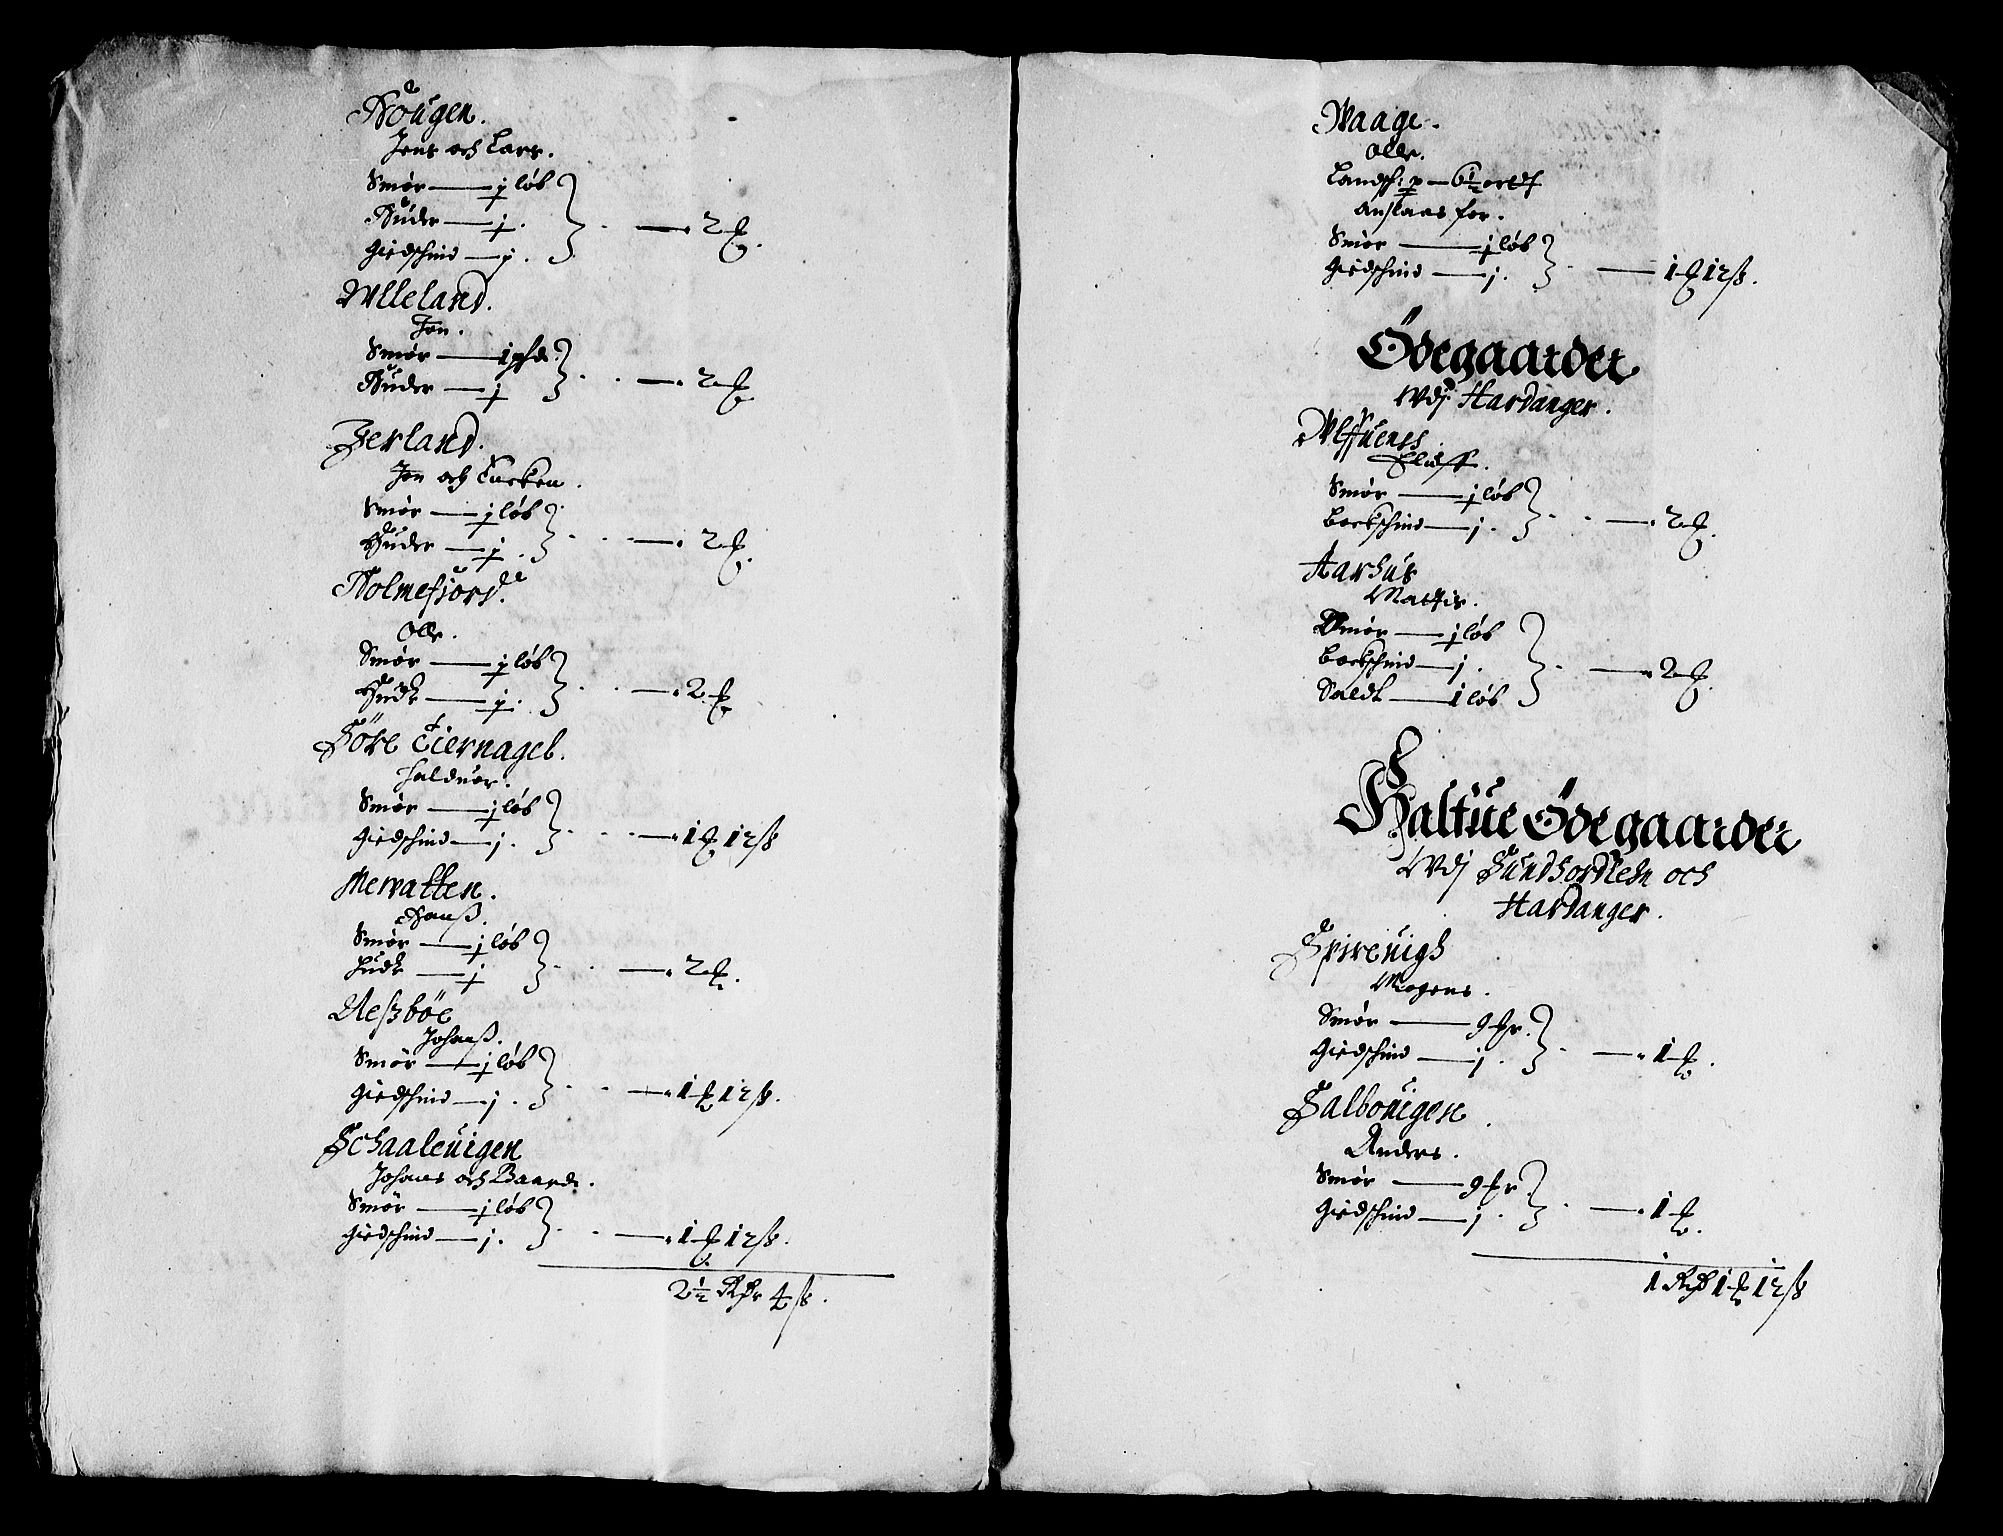 Hougen.
Jens och Lars.
Smør — j løb
Huder — j. — 2 ℔.
Giedschind — j.
Wlleland.
Jon.
Smør — 1 pfd.
Huder — j — 2 ℔
Jerland.
Jon och Torken.
Smør — j løb
Huder — j. — 2 ℔.
Holmefiord.
Olle.
Smør — j løb
Hude — j. — 2 ℔
Søre Tiernagel.
Halduor.
Smør — j løb
Giedschind — j. — 1 ℔ 12 ß
Mewatten.
Hanß.
Smør — j løb
Hude — j — 2 ℔.
Neßbøe
Johanß.
Smør — j løb
Giedschind — j. — 1 ℔ 12 ß.
Schaaleuigen
Johans och Baarde.
Smør — j løb
Giedschind — j. — 1 ℔ 12 ß.
2½ Rdr 4 ß.
Waage.
Olle.
Landsch: p — 6½ ortt
Anslaas for.
Smør — j løb
Giedschind — j. — 1 ℔ 12 ß.
Ödegaarder
Wdj Hardanger.
Wlffuenes
Eluff.
Smør — j løb
Bockschind — j. — 2 ℔.
Aarhus
Mattis.
Smør — j løb
Bockschind — j. — 2 ℔.
Saldt — 1 løb
Halfue Ödegaarder
Wdj Sundhordlehn och
Hardanger.
Spireuigh
Mogens.
Smør — 9 ℔r.
Giedschind — j. — 1 ℔.
Salbouigen.
Anders.
Smør — 9 ℔r.
Giedschind — j. — 1 ℔.
1 Rdr 1 ℔ 12 ß